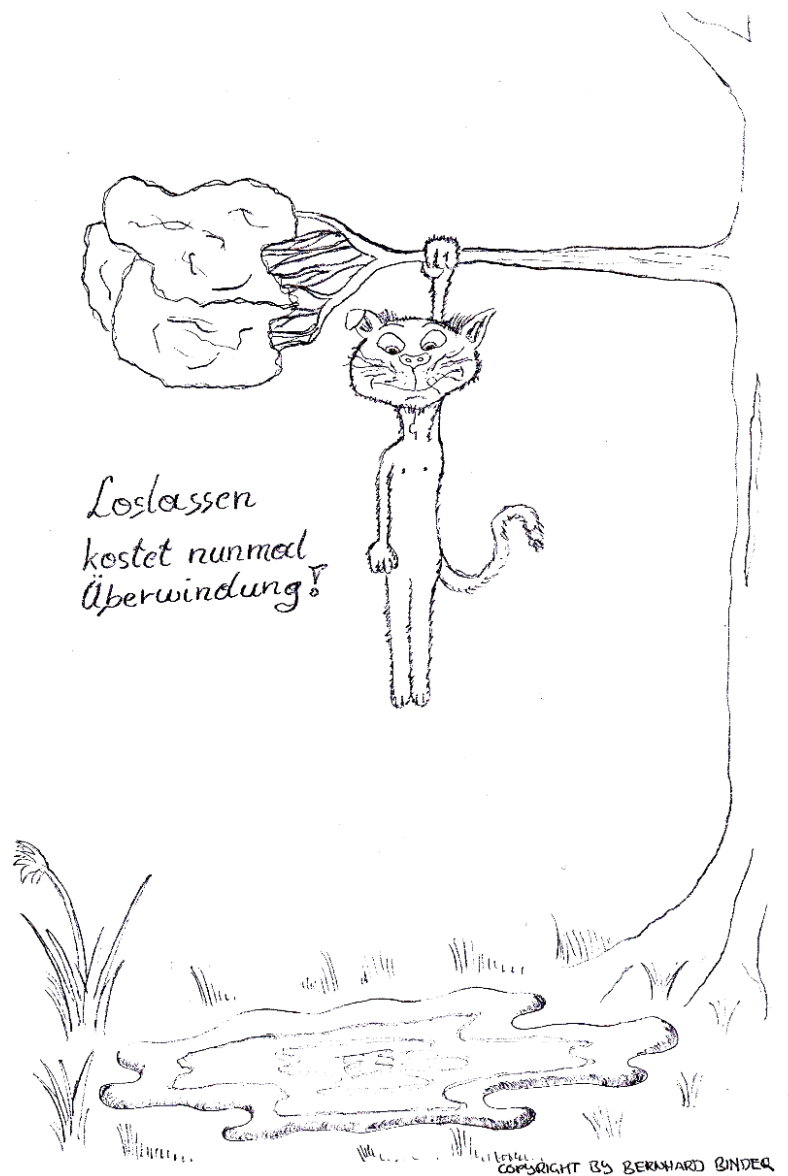 Loslassen
kostet nunmal
Überwindung!
COPYRIGHT BY BERNHARD BINDER